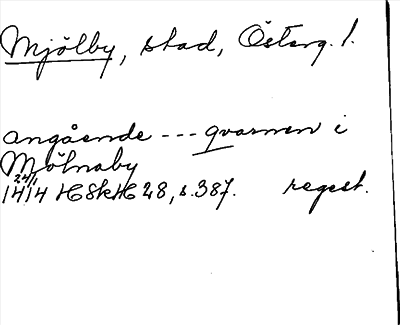 Mjölby, stad, Österg. l.
angående --- qvarnen i
Mölnaby
24/1
1414 HSkH 28, s. 387. regest.